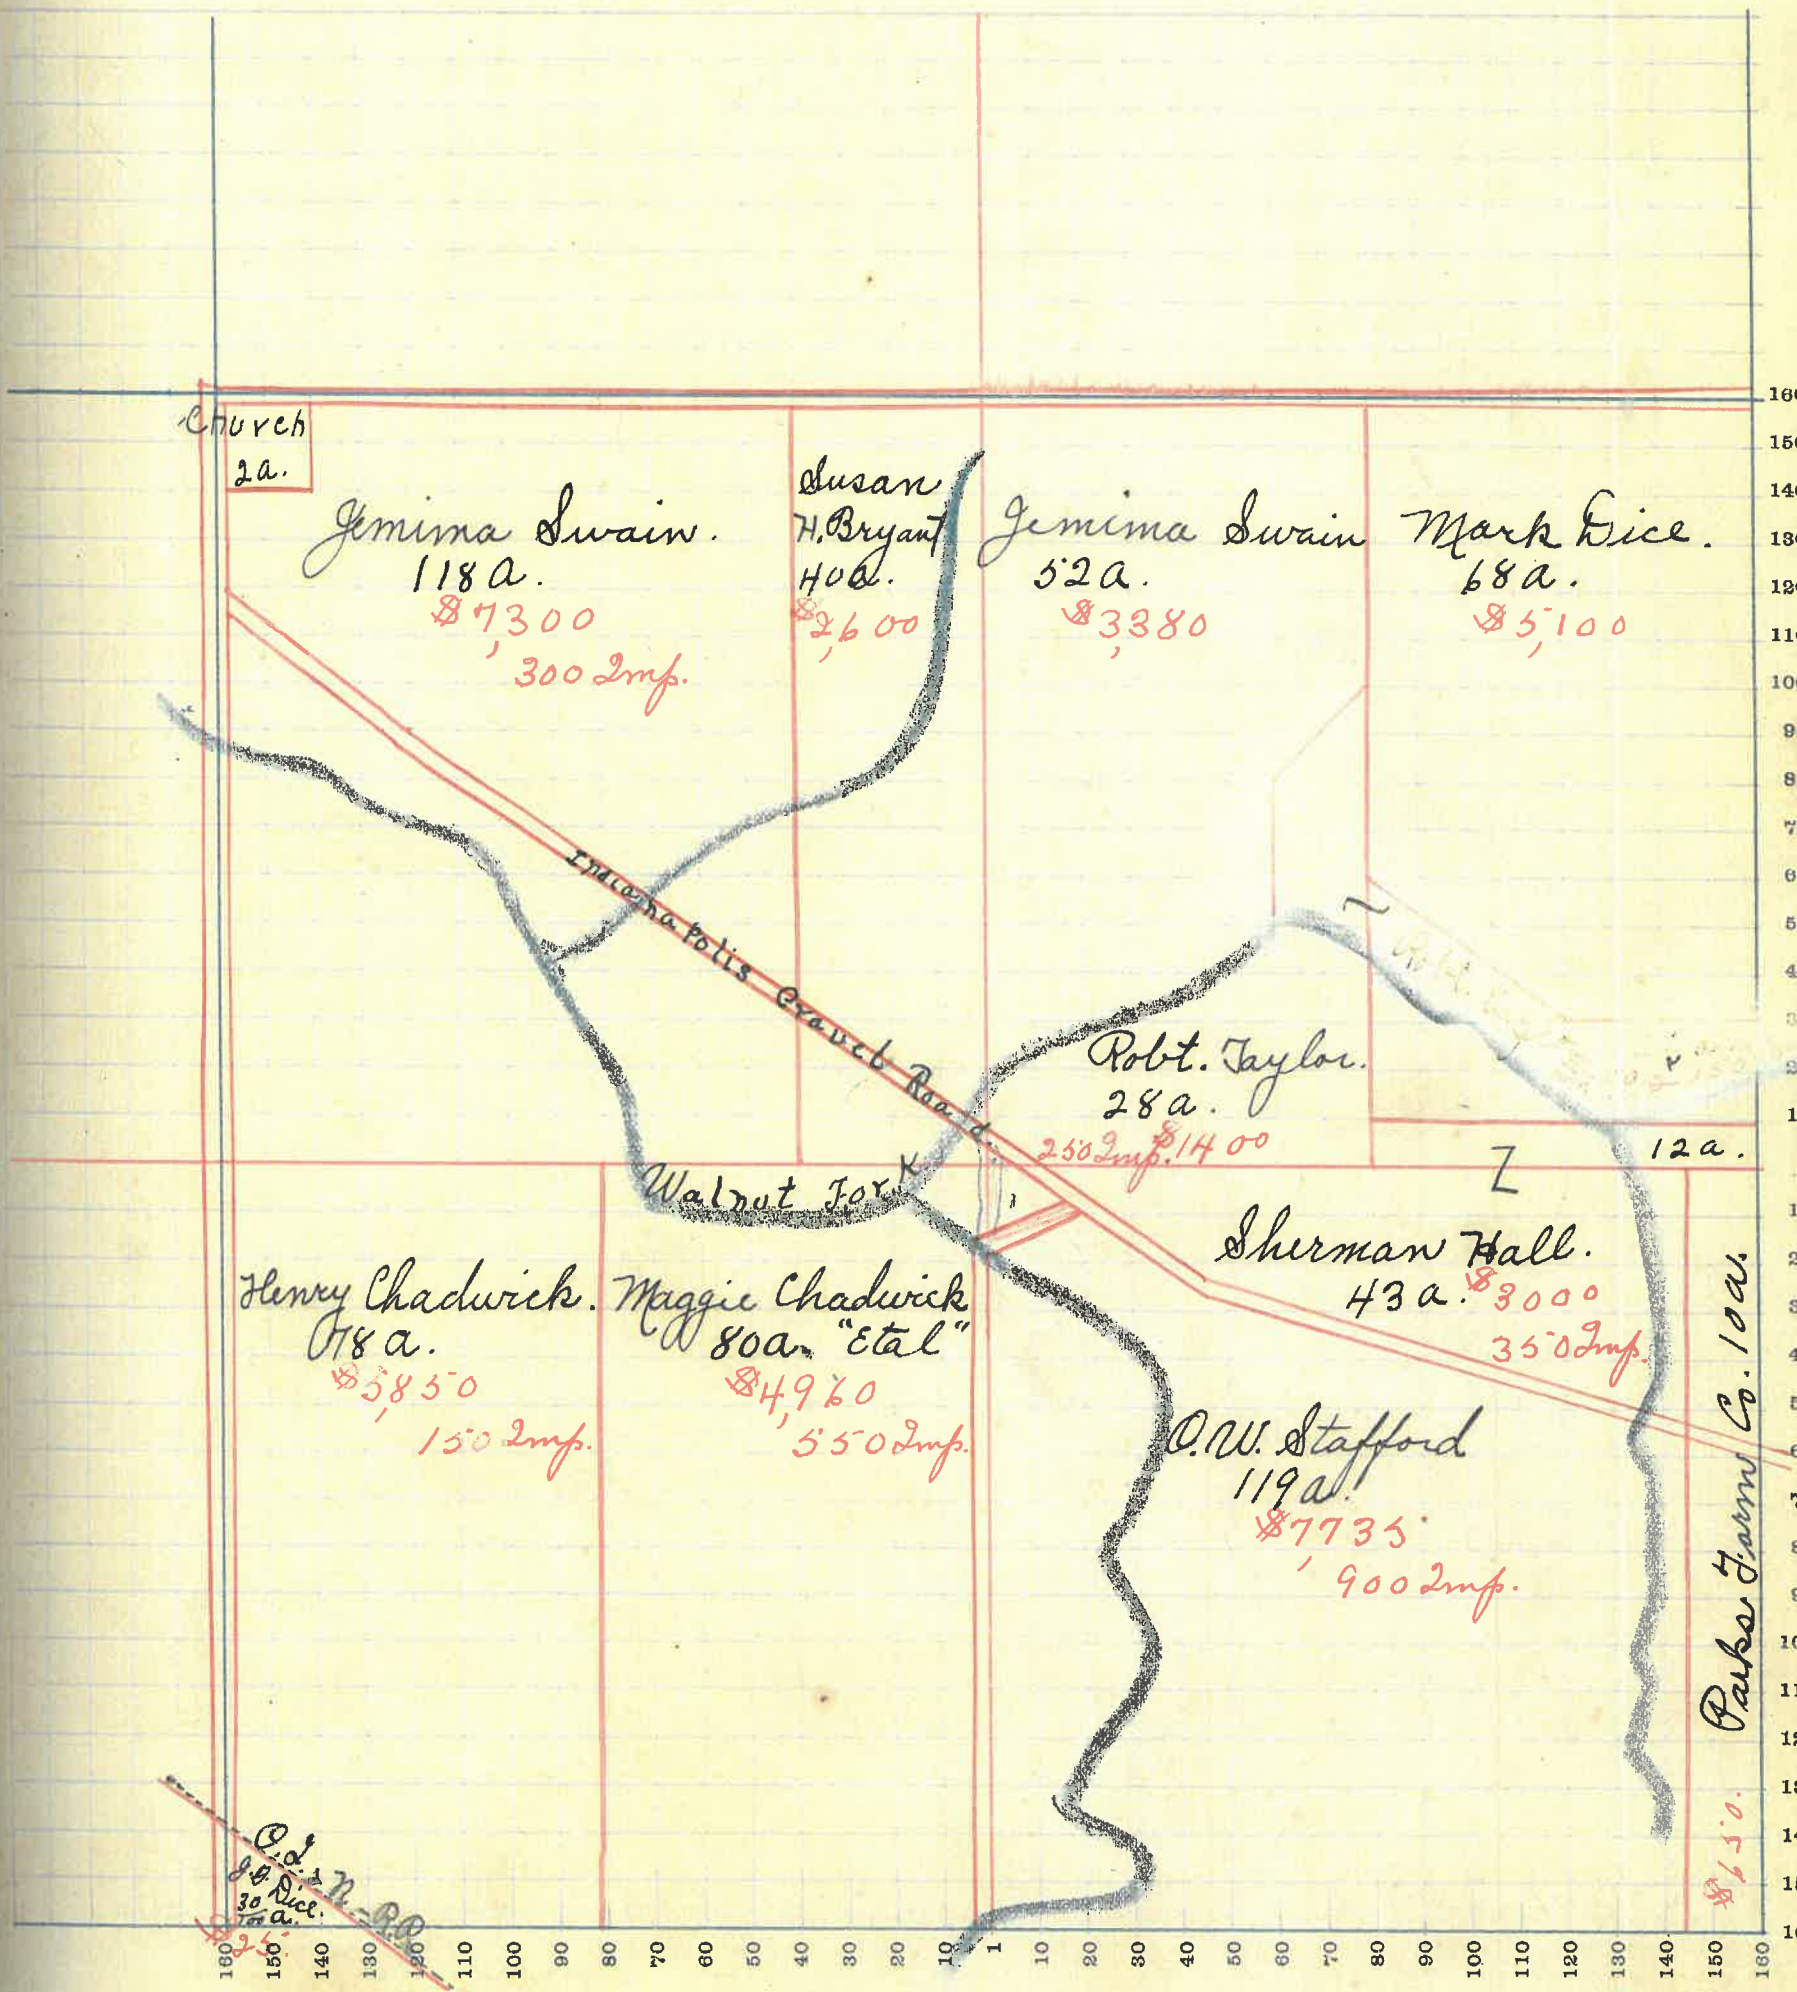 Church
2a.
Jemima Swain.
118a.
$7,300
300 Imp.
Susan
H. Bryant
40a.
$2,600
Jemima Swain
52a.
$3,380
Mark Dice.
68a.
$5,100
Indianapolis Gravel Road.
Robt. Taylor.
28a.
250 Imp. $1400
12a.
Walnut Fork
Henry Chadwick.
78a.
$5,850
150 Imp.
Maggie Chadwick
80a. "Etal"
$4,960
550 Imp.
Sherman Hall.
43a. $3000
350 Imp.
O.W. Stafford
119a.
$7,735
900 Imp.
Parks Farm Co. 10a.
$650.
J.G. Dice.
30/100 a.
$25.
R.R
160 150 140 130 120 110 100 90 80 70 60 50 40 30 20 10 1 10 20 30 40 50 60 70 80 90 100 110 120 130 140 150 160